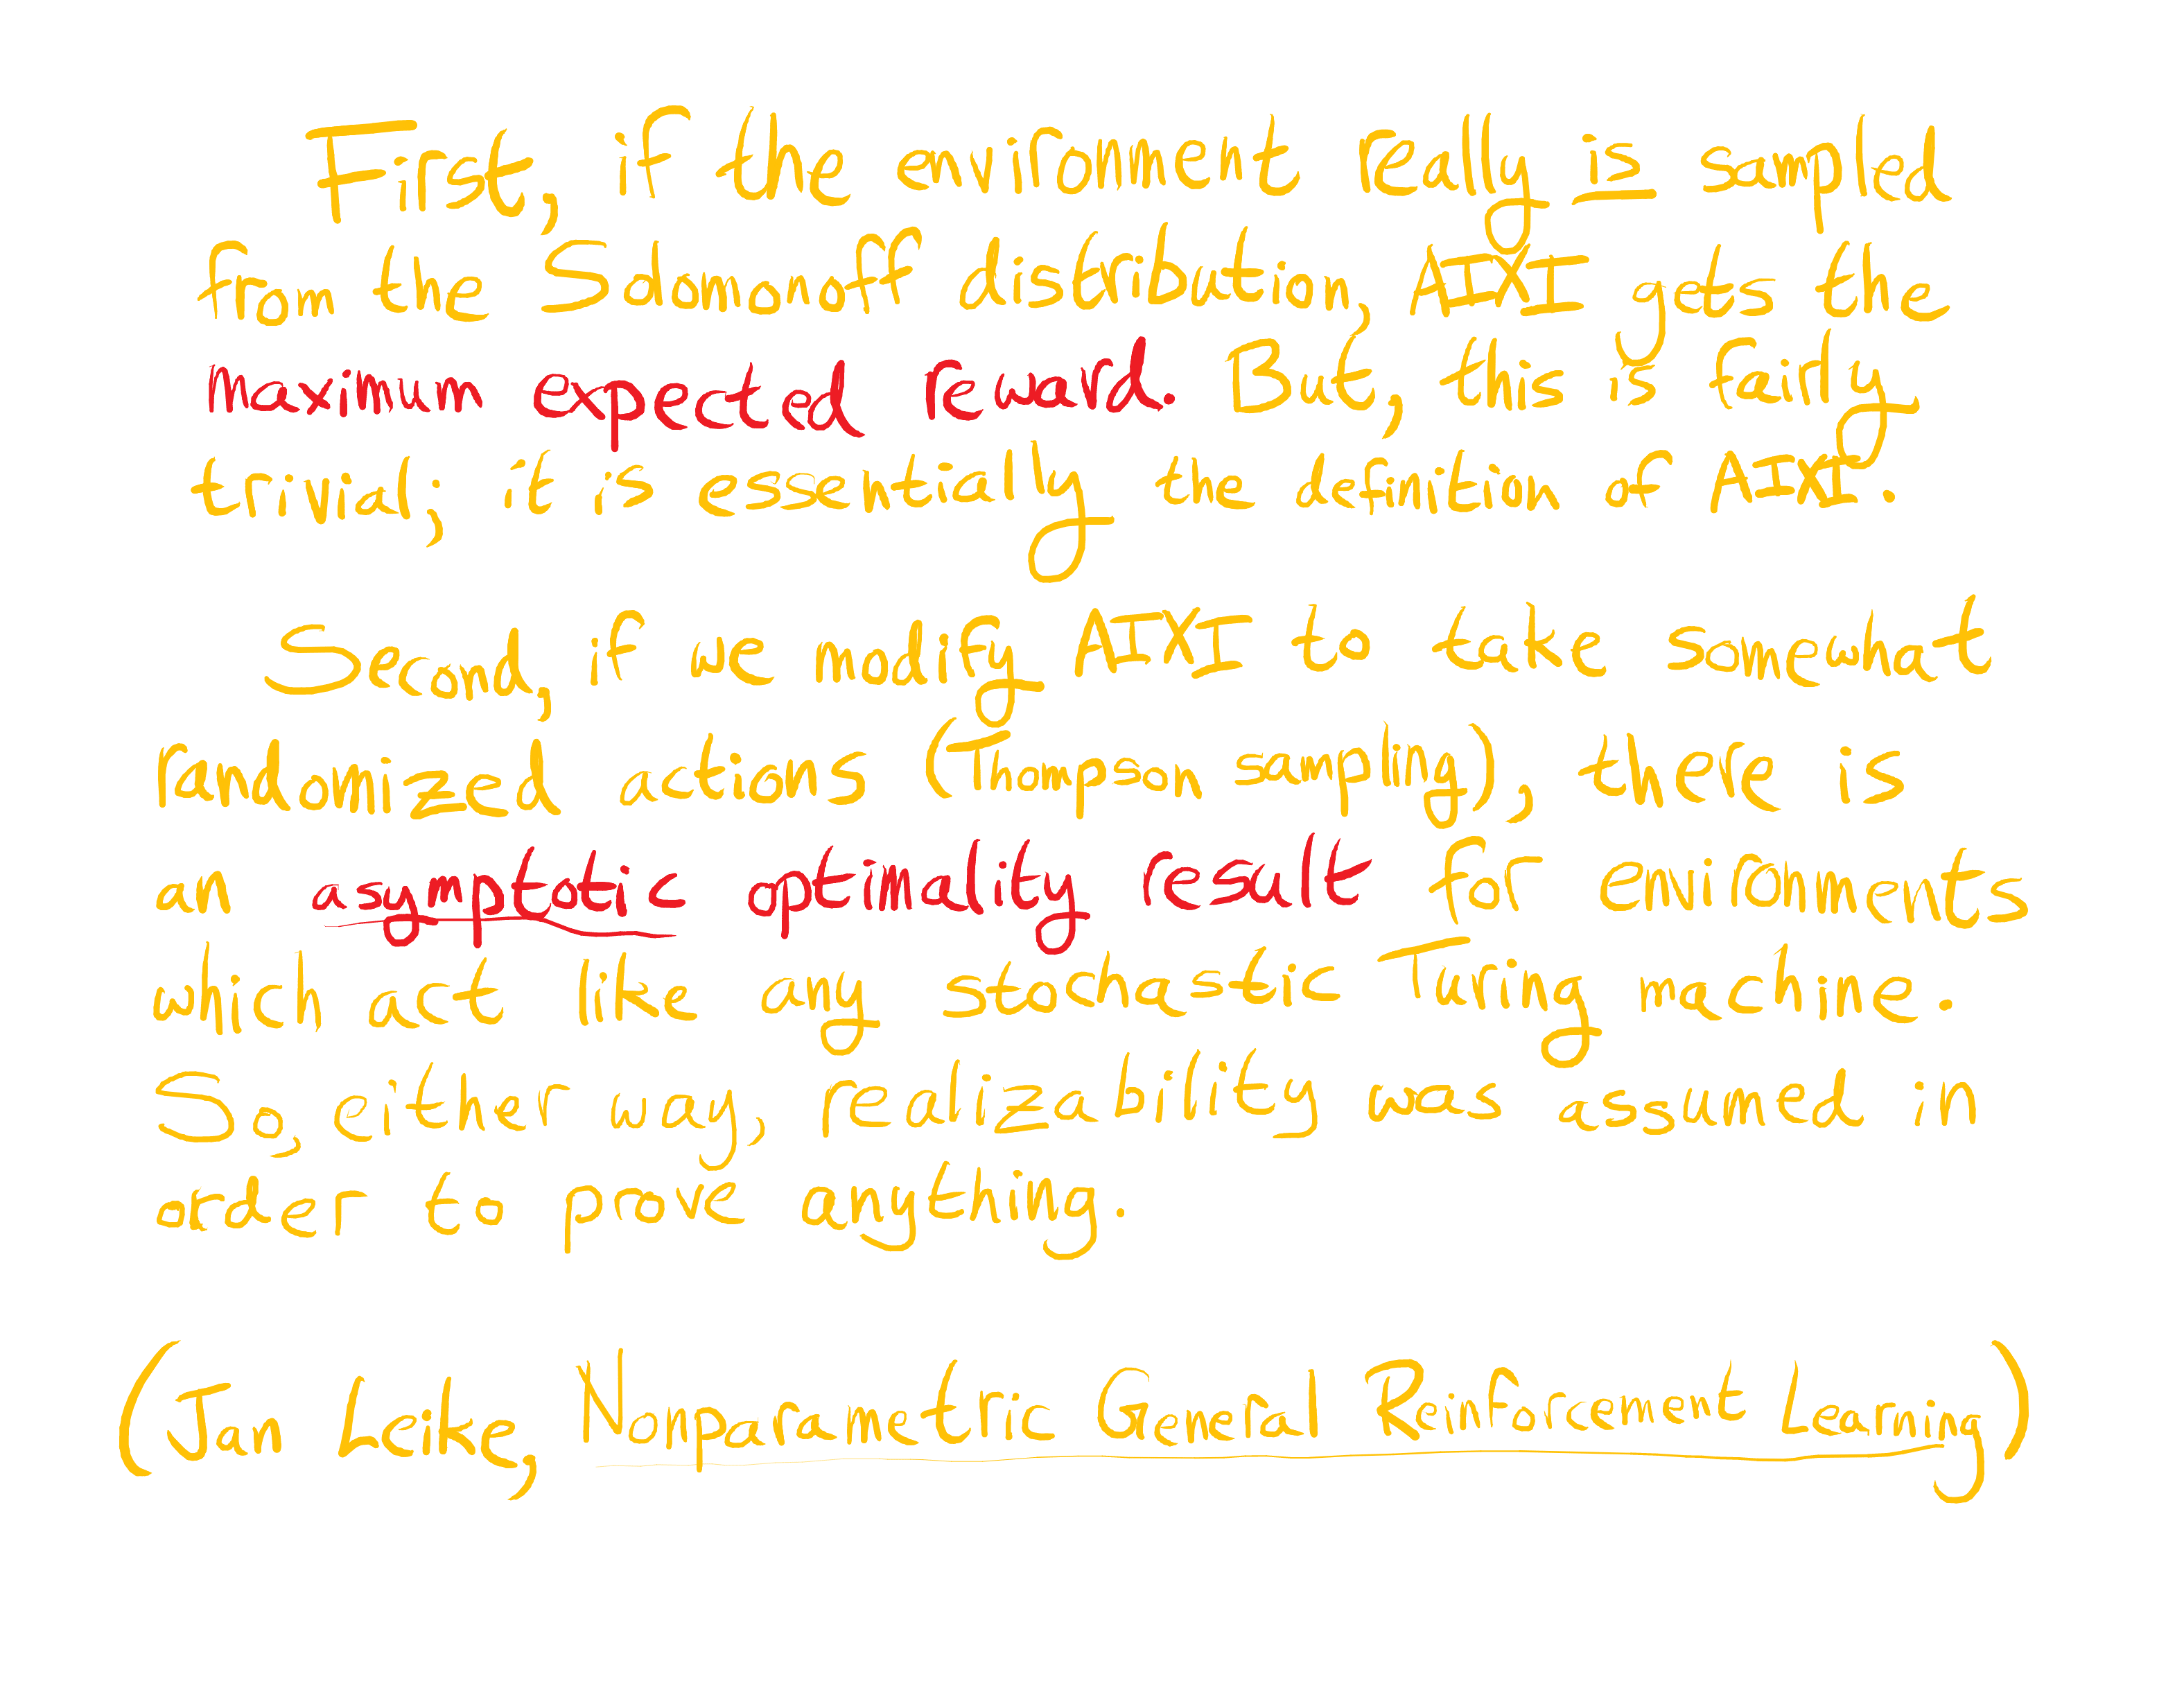 First, if the environment really is sampled
from the Solomonoff distribution, AIXI gets the
maximum expected reward. But, this is fairly
trivial; it is essentially the definition of AIXI.
Second, if we modify AIXI to take somewhat
randomized actions (Thompson sampling), there is
an asymptotic optimality result for environments
which act like any stochastic Turing machine.
So, either way, realizability was assumed in
order to prove anything.
(Jan Leike, Nonparametric General Reinforcement Learning)